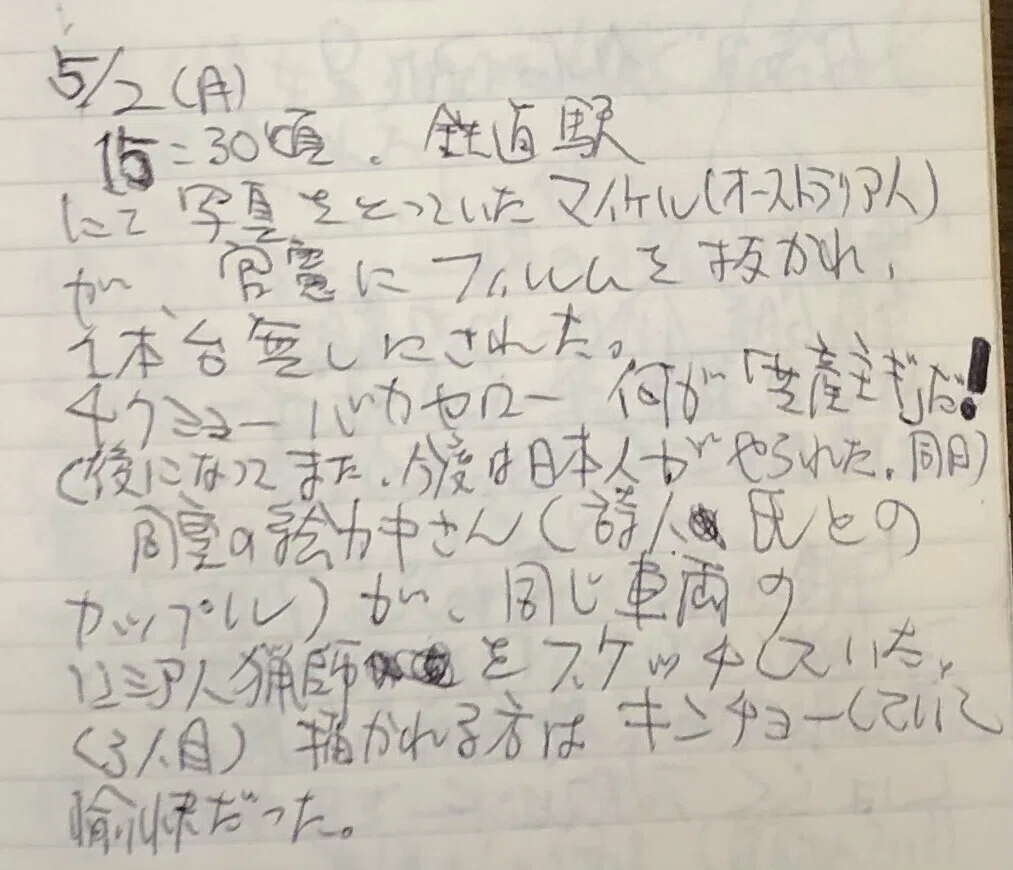 5/2(月)
15:30頃、鉄道駅
にて写真をとっていたマイケル(オーストラリア人)
が、官憲にフィルムを抜かれ、
1本台無しにされた。
チクショーバカヤロー 何が「共産主ぎ」だ!
(後になってまた、今度は日本人がやられた、同日)
同室の絵カキさん(詩人氏との
カップル)が、同じ車両の
ロシア人猟師をスケッチしていた。
(3人目) 描かれる方はキンチョーしていて
愉快だった。